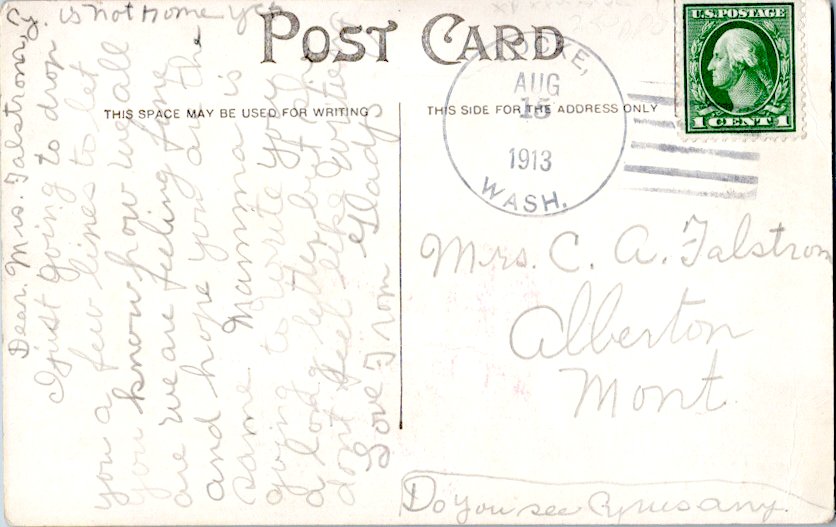 POST CARD
THIS SPACE MAY BE USED FOR WRITING
THIS SIDE FOR THE ADDRESS ONLY
U.S. POSTAGE
1 CENT 1
OCKE,
AUG
15
1913
WASH.
Mrs. C. A. Falstrom
Alberton
Mont.
Dear Mrs. Falstrom,
I just going to drop
you a few lines to let
you know how we all
are we are feeling fine
and hope you are the
same Mamma is
going to write you
a long letter but she
dont feel like writing
Love From Gladys
is not home yet
Do you see any